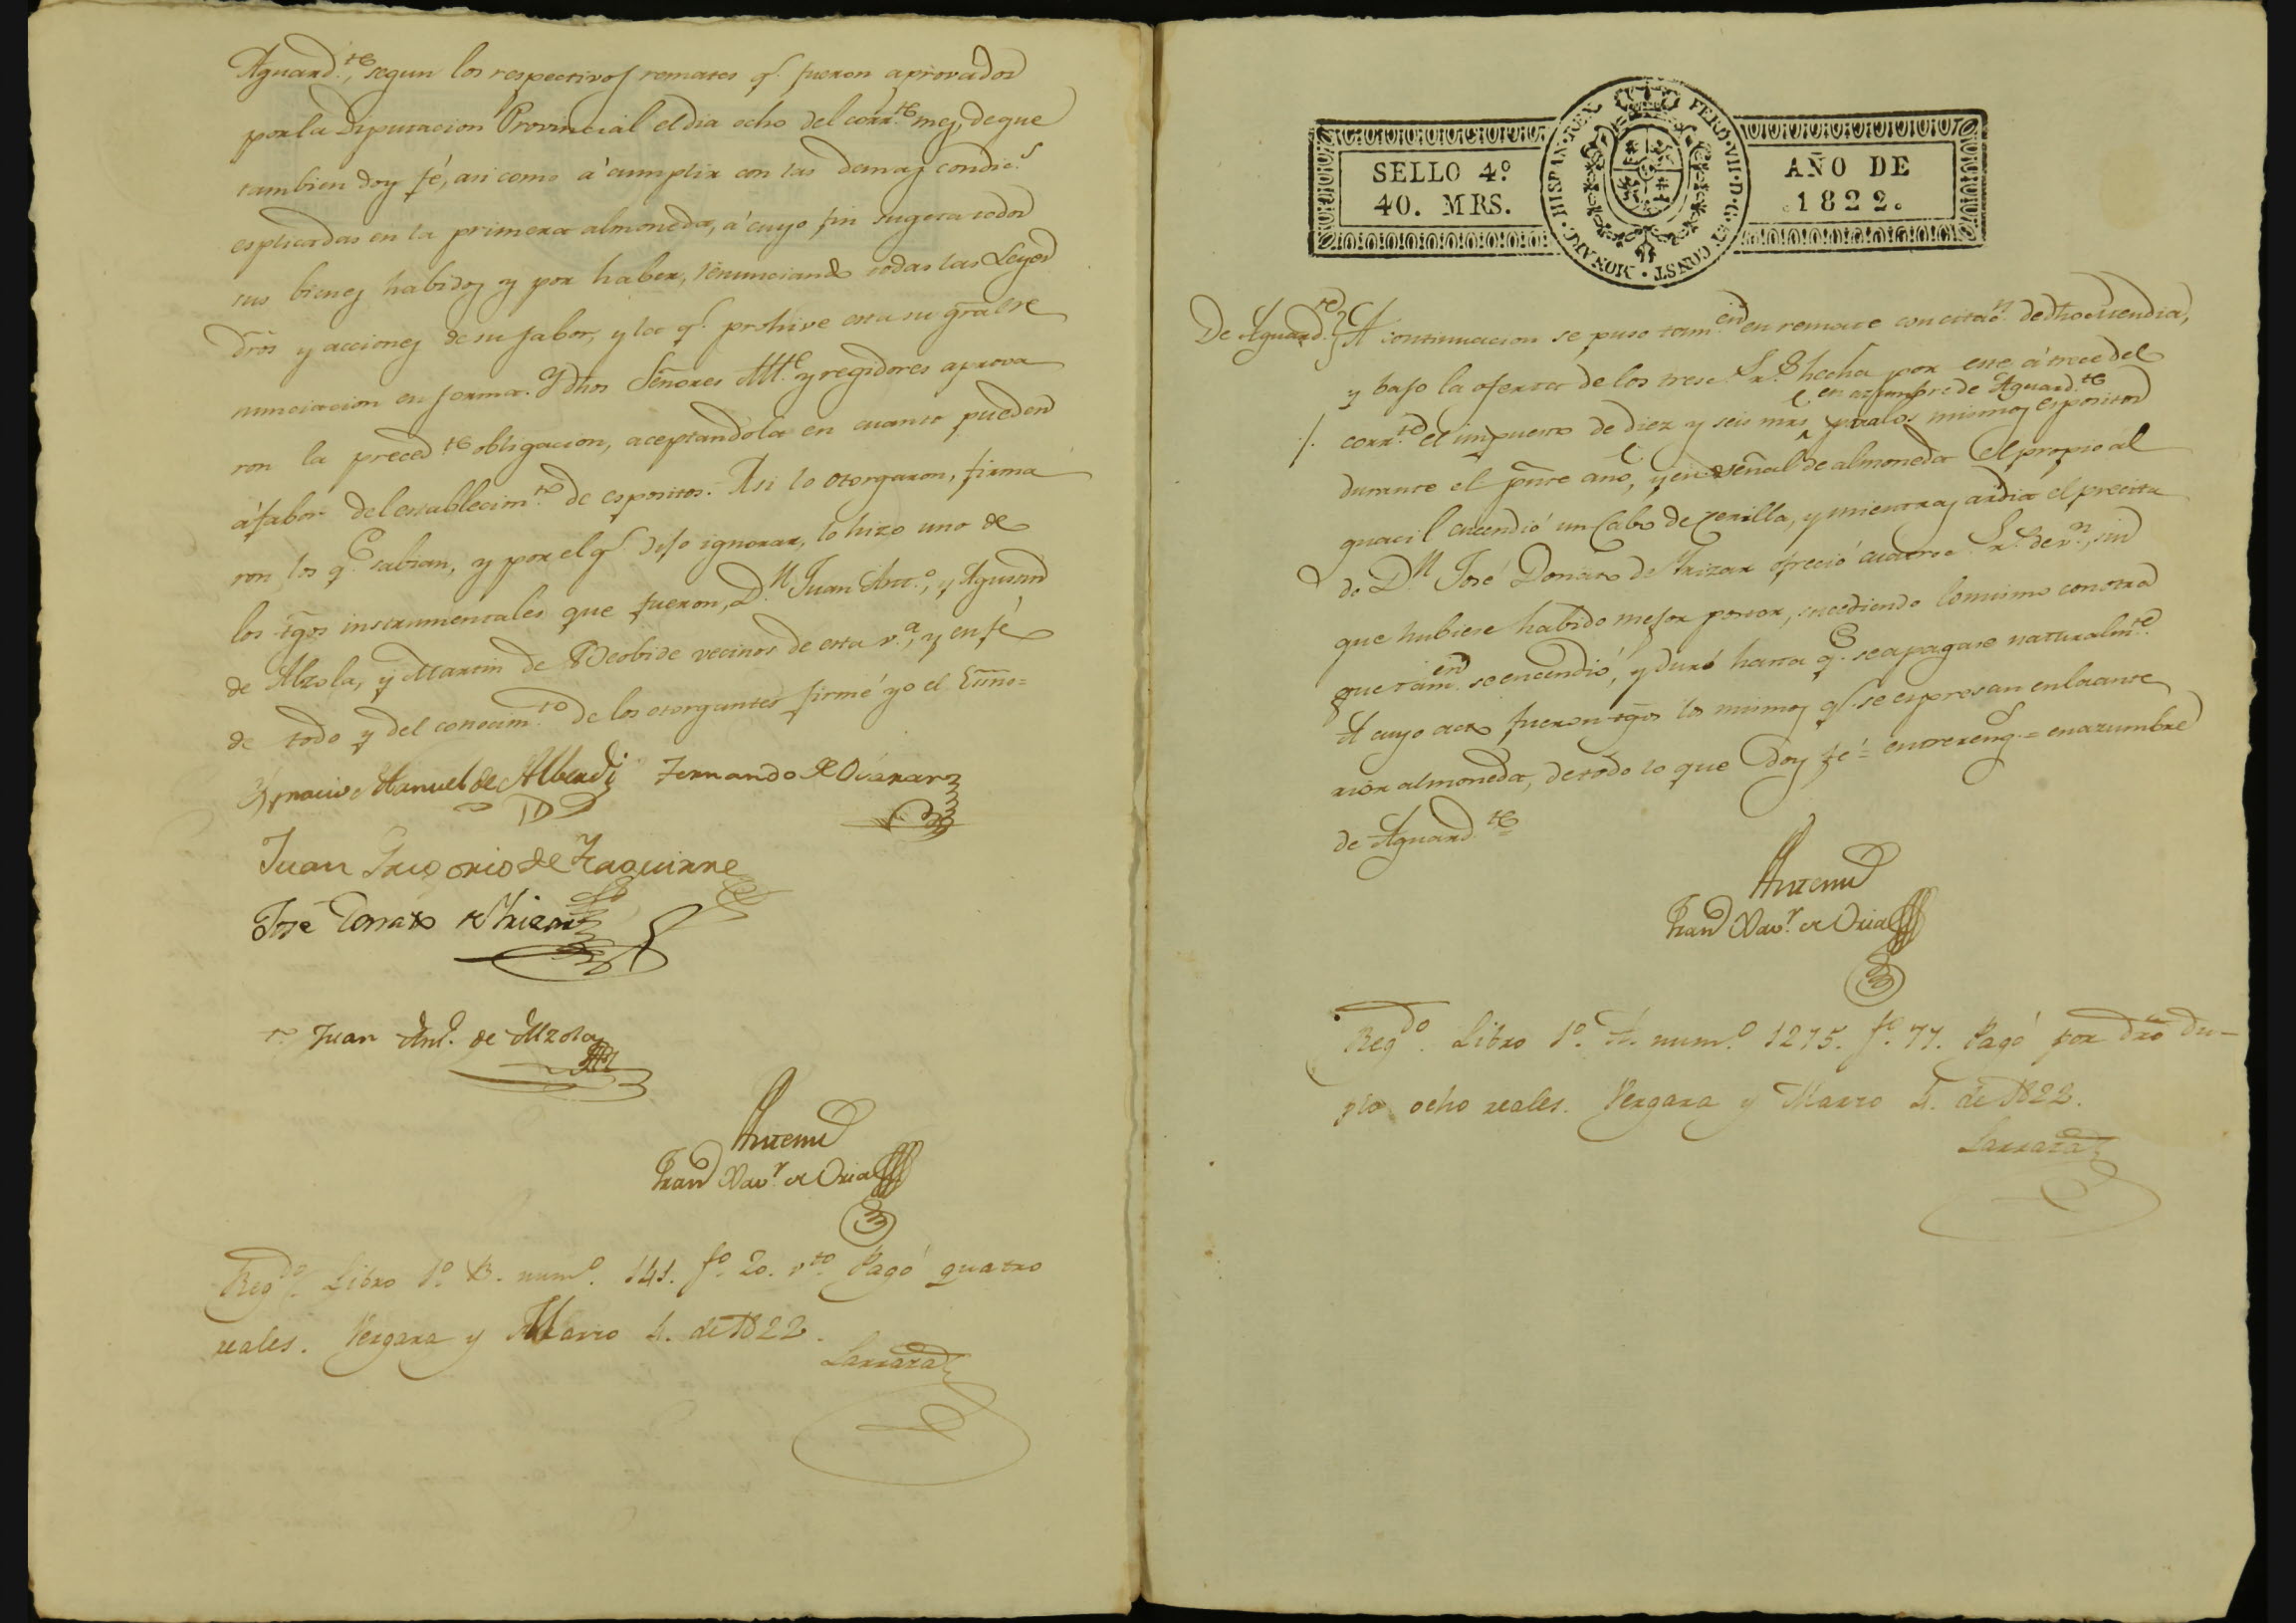 Aguard.te, segun los respectivos remates q.e fueron aprovados
por la Diputacion Provincial el dia ocho del corr.te mes, de que
tambien doy fé, asi como á cumplir con las demas condic.s
esplicadas en la primera almoneda, á cuyo fin sugeta todos
sus bienes habidos y por haber, renunciando todas las Leyes
dros y acciones de su fabor, y la q.e prohive esta su gral re
nunciacion en forma. Y dhos Señores Alc.e y regidores aprova
ron la preced.te obligacion, aceptandola en cuanto pueden
á fabor del establecim.to de espositos. Asi lo otorgaron, firma
ron, los q.e sabian, y por el q.e dijo ignorar, lo hizo uno de
los tgos instrumentales que fueron, D.n Juan Ant.o, y Agustin
de Alzola, y Martin de Beobide vecinos de esta v.a, y en fé
de todo y del conocim.to de los otorgantes firmé yo el Essno=
Ygnacio Manuel de Alberdi Fernando de
Juan Gregorio de Yraguirre
José Donato de Yrizar
t.o Juan Ant.o de Alzola
Antemi
Fran Xav.r de Oria
Reg.do Libro 1.o B. num.o 141. f.o 20. v.to Pagó quatro
reales. Vergara y Marzo 4. de 1822.
Larraza
SELLO 4.º
40. MRS.
HISPAN·REX FERD·VII·D·G·ET CONST·MONARC·
AÑO DE
1822.
De Aguard.te
A continuacion se puso tam.en en remate con citac.n de dho Arrendia,
y bajo la oferta de los trece r.s hecha por este á trece del
en azumbre de Aguard.te
corr.te el impuesto de diez y seis mrs para los mismos espositos
durante el pnte año, y en señal de almoneda el propio al
guacil encendió un Cabo de cerilla, y mientras ardia el precita
do D.n José Donato de Yrizar ofreció catorce r.s de v.n, sin
que hubiese habido mejor postor, sucediendo lo mismo con otra
que tam.en se encendió, y duró hasta q.e se apagase naturalm.te
A cuyo acto fueron tgos los mismos q.e se espresan en la ante
rior almoneda, de todo lo que doy fé= entrereng.s= en azumbre
de Aguard.te=
Antemi
Fran Xav.r de Oria
Reg.do Libro 1.o A. num.o 1275. f.o 77. Pagó por dro du-
plo ocho reales. Vergara y Marzo 4. de 1822.
Larraza